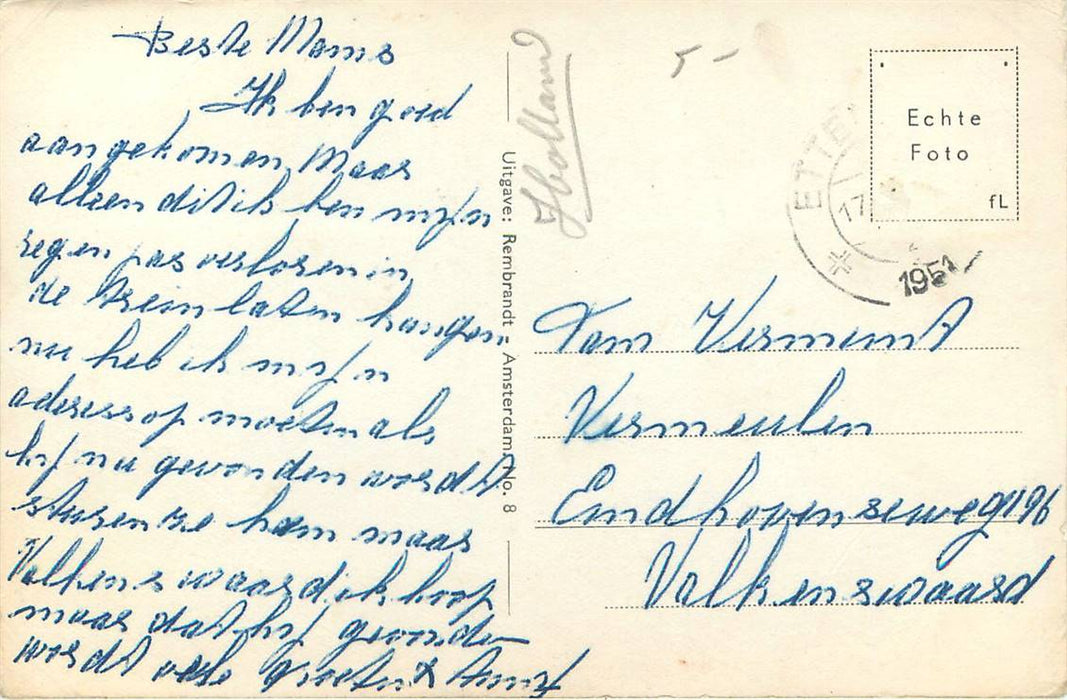 Beste Moms
Ik ben goed
aangekomen Maar
alleen dit ik ben mijn
regen jas verloren in
de trein laten hangen
nu heb ik mijn
adress op moeten als
hij nu gevonden wordt
sturen ze hem maar
Valkenswaard ik hoop
maar dat hij gevonden
wordt vele groeten
Holland
5-
Uitgave: Rembrandt - Amsterdam. No. 8
Echte
Foto
fL
ETTE
17
1951
Fam Verment
Vermeulen
Eindhovenseweg 196
Valkenswaard